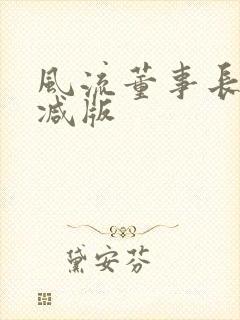 風流董事長
减版
黛安芬